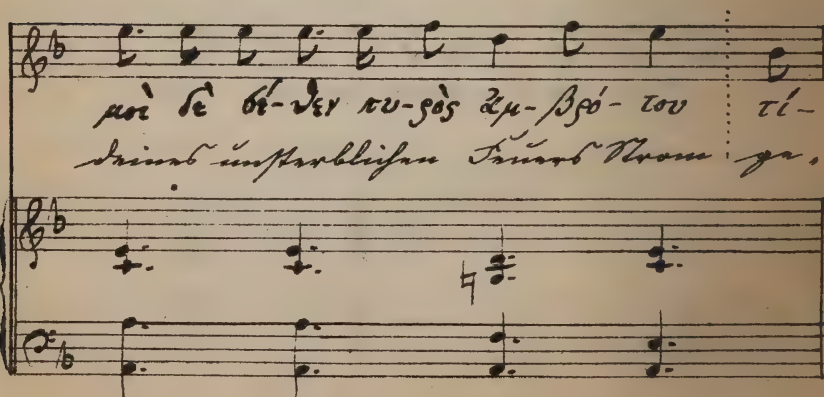 ποὶ δὲ σέ-θεν πυ-ρὸς ἀμ-βρό-του τί-
deines unsterblichen Feuers Strom ge-